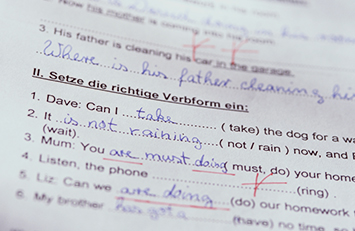 Now his mother is coming into his room.
3. His father is cleaning his car in the garage.
Where is his father cleaning hi
II. Setze die richtige Verbform ein:
1. Dave: Can I take ( take) the dog for a wa
2. It is not raining ( not / rain ) now, and I
(wait).
3. Mum: You are must doing must, do) your home
4. Listen, the phone (ring) .
5. Liz: Can we are doing (do) our homework
6. My brother has gota (have) no time, so